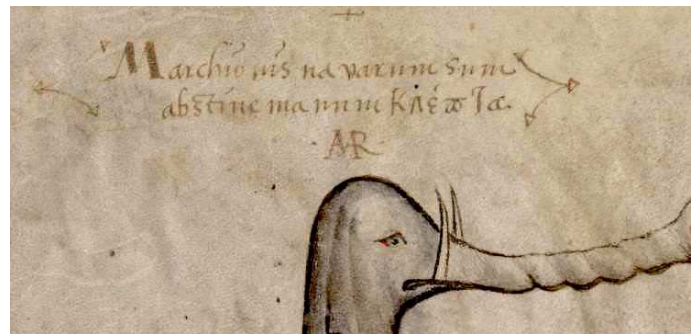 Marchionis navarum sum
abstine manum Κλέπτα.
·AR·